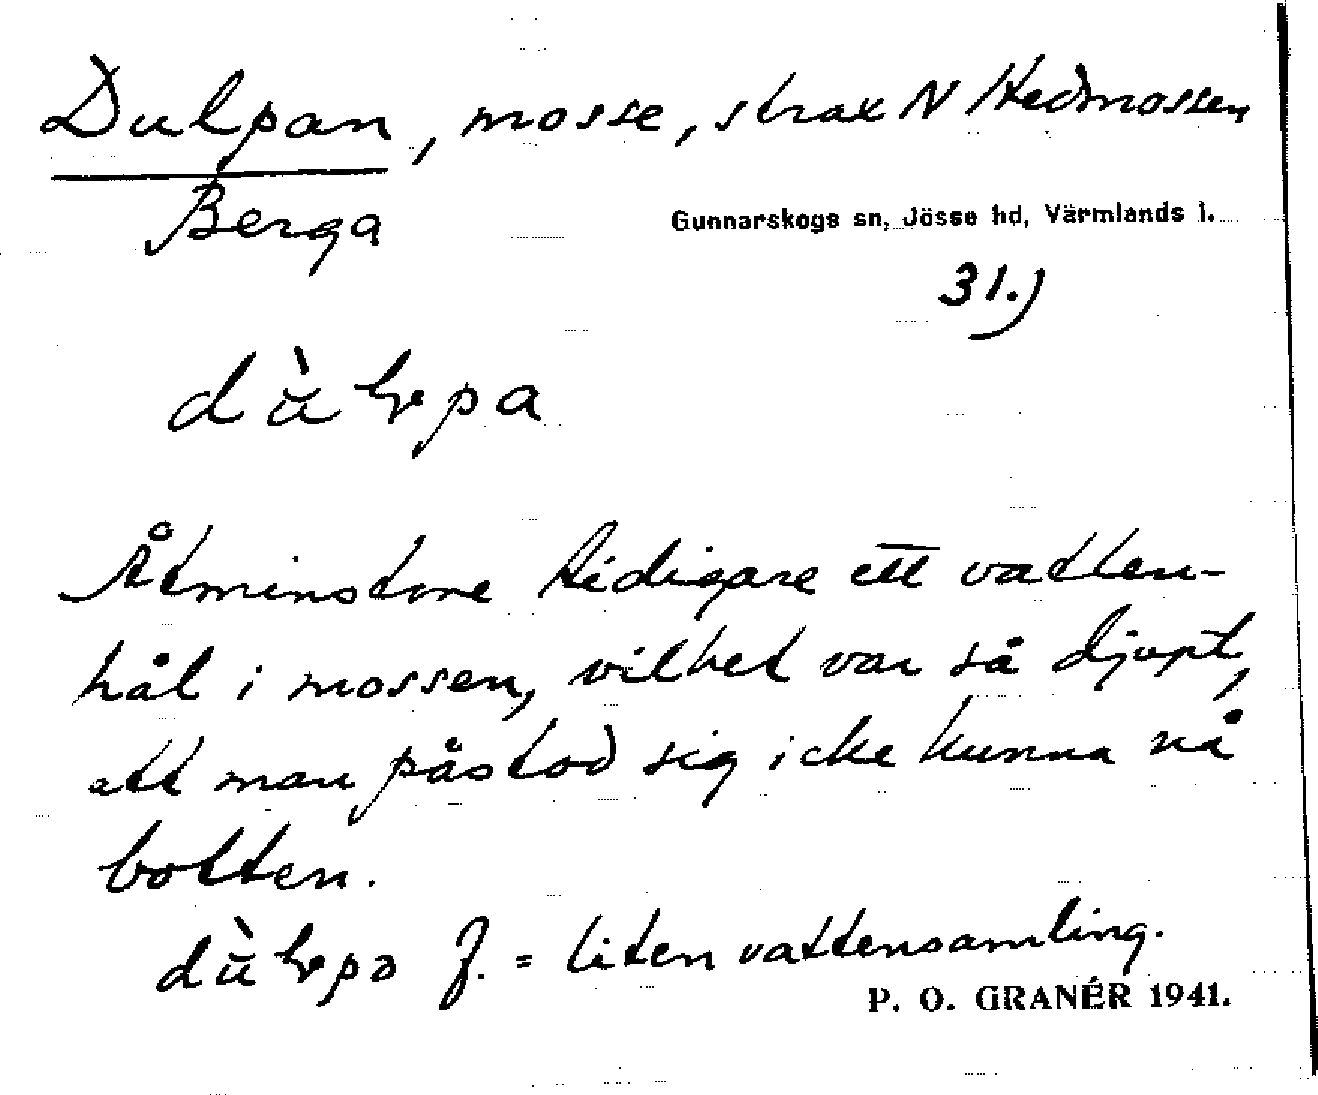 Dulpan, mosse, strax N Hedmossen
Berga
Gunnarskogs sn, Jösse hd, Värmlands l.
31.)
Åtminstone tidigare ett vatten-
hål i mossen, vilket var så djupt,
att man påstod sig icke kunna nå
botten.
f. = liten vattensamling.
P. O. GRANÉR 1941.